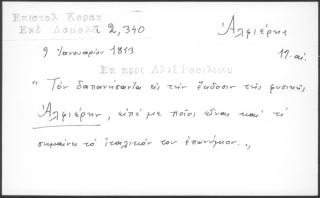 Επιστολ Κοραη
Εκδ Δαμαλᾶ 2,340
Ἀλφιέρης
9 Ἰανουαρίου 1813
19. αἰ.
Επ προς Αλεξ Βασιλειου
" Τὸν δαπανήσαντα εἰς τὴν ἔκδοσιν τῆς φυσικῆς
Ἀλφιέρην, εἰπέ με ποῖος εἶναι καὶ τί
σημαίνει τὸ ἰταλικόν του ἐπώνυμον. „